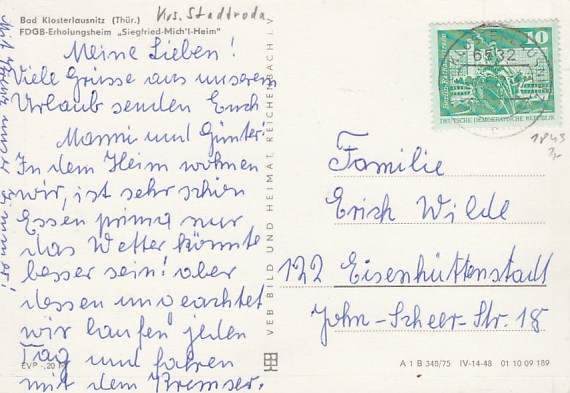 Bad Klosterlausnitz (Thür.) Krs. Stadtroda
FDGB-Erholungsheim „Siegfried-Mich'l-Heim"
Meine Lieben!
Viele Grüsse aus unseren
Urlaub senden Euch
Manni und Günter!
In dem Heim wohnen
wir, ist sehr schön
Essen prima nur
das Wetter könnte
besser sein! aber
dessen ungeachtet
wir laufen jeden
Tag und fahren
mit dem Kremser.
EVP -,20 M
VEB BILD UND HEIMAT REICHENBACH i. V.
10
DEUTSCHE DEMOKRATISCHE REPUBLIK
6532
1843
Familie
Erich Wilde
122 Eisenhüttenstadt
John-Scheer-Str. 18
A 1 B 348/75 IV-14-48 01 10 09 189